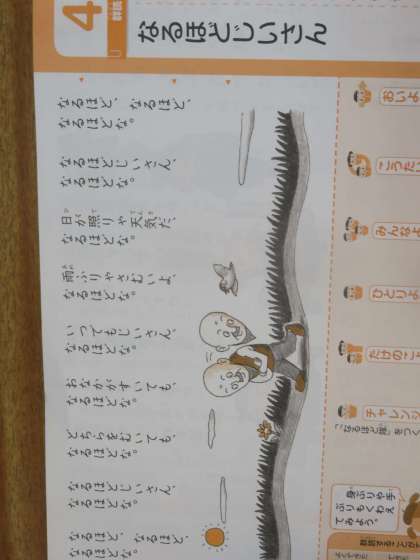 4
群読
なるほどじいさん
なるほど、なるほど、
なるほどな。
なるほどじいさん、
なるほどな。
日が照りゃ天気だ、
なるほどな。
雨ふりゃさむいよ、
なるほどな。
いつでもじいさん、
なるほどな。
おなかがすいても、
なるほどな。
どちらをむいても、
なるほどな。
なるほどじいさん、
なるほどな。
なるほど、なるほど、
なるほどな。
おいよ
こうたい
みんなよ
ひとりよ
たけのこ
チャレンジ
「なるほど隊」をつく
身ぶりや手
ぶりもくわえ
てみよう。